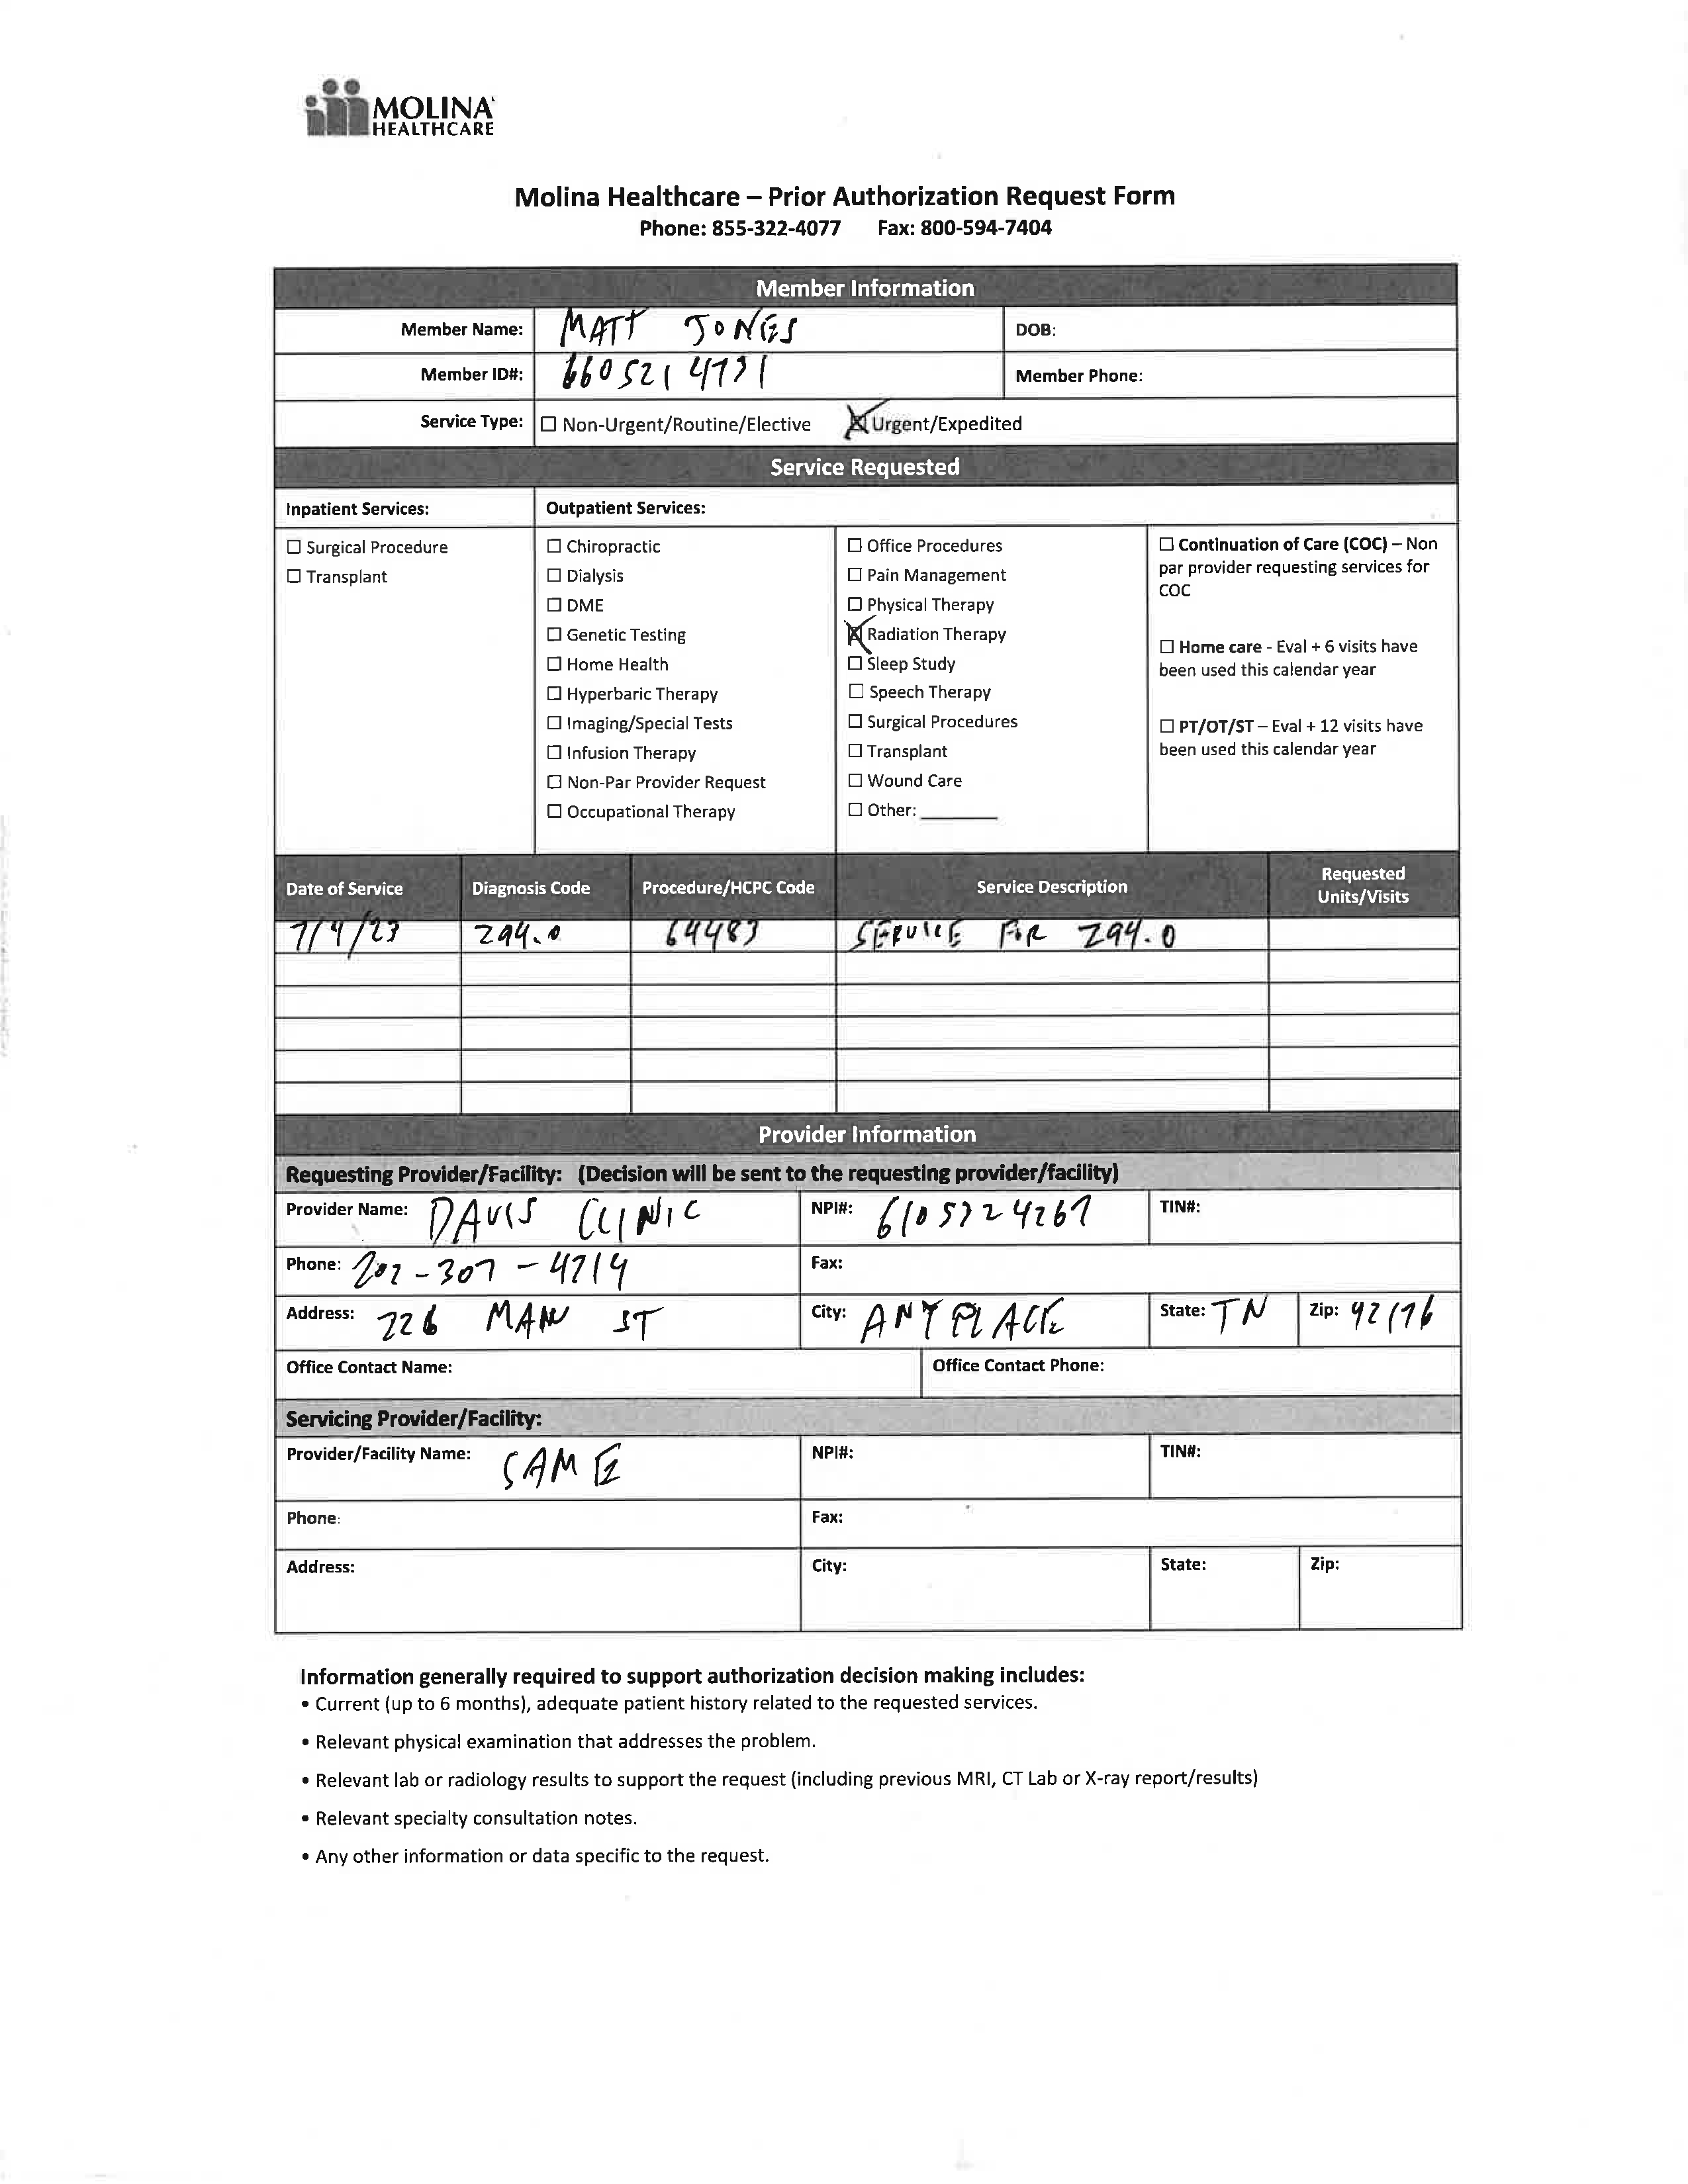 MOLINA
HEALTHCARE
Molina Healthcare – Prior Authorization Request Form
Phone: 855-322-4077 Fax: 800-594-7404
Member Information
Member Name: MATT JONES DOB:
Member ID#: Member Phone:
Service Type: ☐ Non-Urgent/Routine/Elective ☒ Urgent/Expedited
Service Requested
Inpatient Services: Outpatient Services:
☐ Surgical Procedure
☐ Transplant
☐ Chiropractic
☐ Dialysis
☐ DME
☐ Genetic Testing
☐ Home Health
☐ Hyperbaric Therapy
☐ Imaging/Special Tests
☐ Infusion Therapy
☐ Non-Par Provider Request
☐ Occupational Therapy
☐ Office Procedures
☐ Pain Management
☐ Physical Therapy
☒ Radiation Therapy
☐ Sleep Study
☐ Speech Therapy
☐ Surgical Procedures
☐ Transplant
☐ Wound Care
☐ Other: ________
☐ Continuation of Care (COC) – Non
par provider requesting services for
COC
☐ Home care - Eval + 6 visits have
been used this calendar year
☐ PT/OT/ST – Eval + 12 visits have
been used this calendar year
Date of Service Diagnosis Code Procedure/HCPC Code Service Description Requested
Units/Visits
294.0 64483 SERVICE FOR 294.0
Provider Information
Requesting Provider/Facility: (Decision will be sent to the requesting provider/facility)
Provider Name: DAVIS CLINIC NPI#: TIN#:
Phone: Fax:
Address: 226 MAIN ST City: ANYPLACE State: TN Zip:
Office Contact Name: Office Contact Phone:
Servicing Provider/Facility:
Provider/Facility Name: SAME NPI#: TIN#:
Phone: Fax:
Address: City: State: Zip:
Information generally required to support authorization decision making includes:
• Current (up to 6 months), adequate patient history related to the requested services.
• Relevant physical examination that addresses the problem.
• Relevant lab or radiology results to support the request (including previous MRI, CT Lab or X-ray report/results)
• Relevant specialty consultation notes.
• Any other information or data specific to the request.